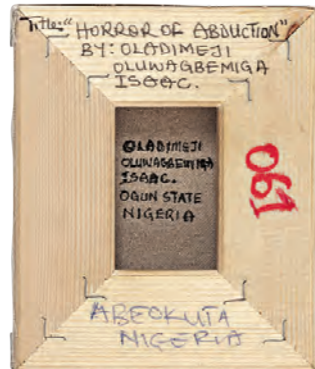 Title: "HORROR OF ABDUCTION"
BY: OLADIMEJI
OLUWAGBEMIGA
ISAAC.
OLADIMEJI
OLUWAGBEMIGA
ISAAC.
OGUN STATE
NIGERIA
061
ABEOKUTA
NIGERIA